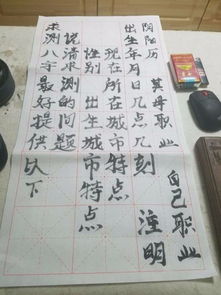 求测八字最好提供以下
说清求测的问题
性别 出生城市特点
现在所在城市特点
阴阳历出生年月日几点几刻 注明
父母职业 自己职业